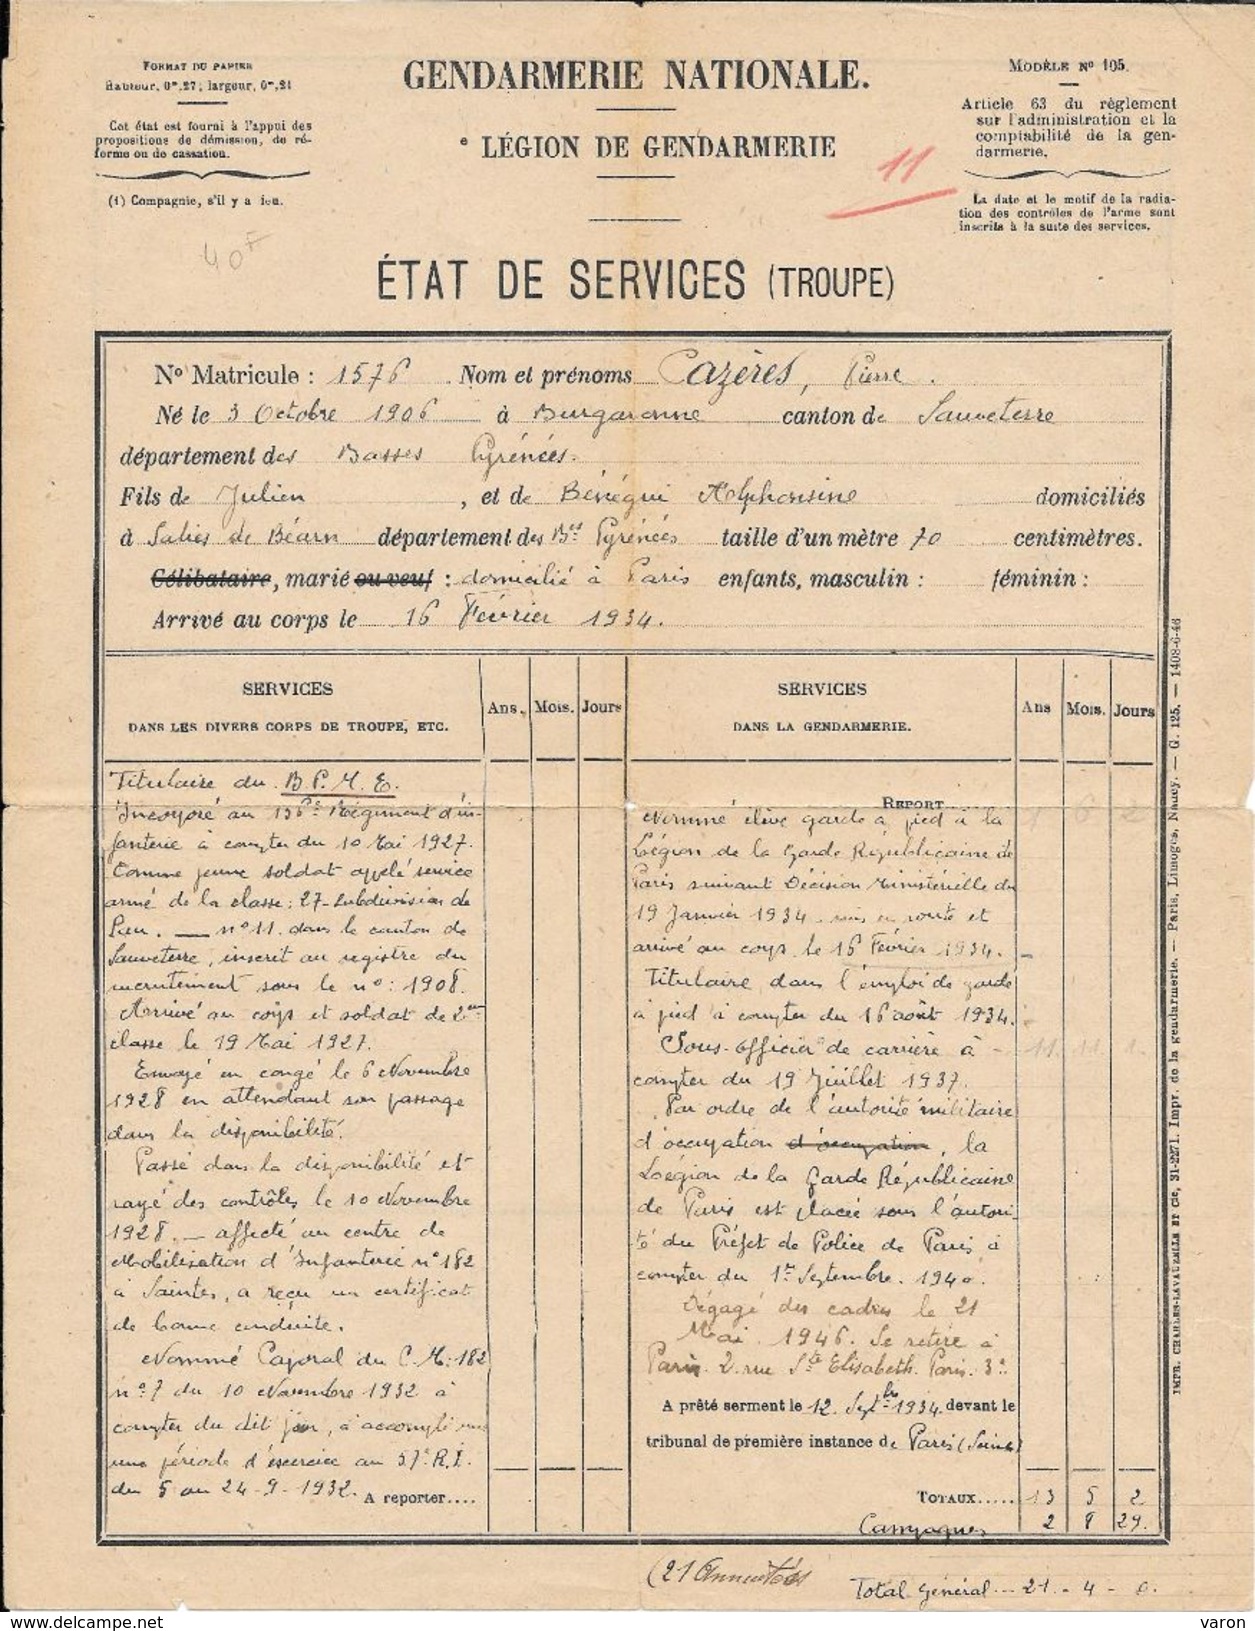 FORMAT DU PAPIER
Hauteur, 0m,27; largeur, 0m,21
Cet état est fourni à l'appui des
propositions de démission, de ré-
forme ou de cassation.
(1) Compagnie, s'il y a lieu.
40F
GENDARMERIE NATIONALE.
e LÉGION DE GENDARMERIE
11
MODÈLE No 105.
Article 63 du règlement
sur l'administration et la
comptabilité de la gen-
darmerie.
La date et le motif de la radia-
tion des contrôles de l'arme sont
inscrits à la suite des services.
ÉTAT DE SERVICES (TROUPE)
No Matricule : 1576 Nom et prénoms Cazères, Pierre.
Né le 3 Octobre 1906 à Burgaronne canton de Sauveterre
département des Basses Pyrénées.
Fils de Julien, et de Bénéqui Alphonsine domiciliés
à Salies de Béarn département des Bses Pyrénées taille d'un mètre 70 centimètres.
Célibataire, marié ou veuf : domicilié à Paris enfants, masculin : féminin :
Arrivé au corps le 16 Février 1934.
SERVICES
DANS LES DIVERS CORPS DE TROUPE, ETC.
Ans. Mois. Jours
Titulaire du B.P.M.E.
Incorporé au 136e Régiment d'in-
fanterie à compter du 10 Mai 1927.
Comme jeune soldat appelé service
armé de la classe : 27 - Subdivision de
Pau. — no 11. dans le canton de
Sauveterre, inscrit au registre du
recrutement sous le no : 1908.
Arrivé au corps et soldat de 2me
classe le 19 Mai 1927.
Envoyé en congé le 6 Novembre
1928 en attendant son passage
dans la disponibilité.
Passé dans la disponibilité et
rayé des contrôles le 10 Novembre
1928. — affecté au centre de
Mobilisation d'Infanterie no 182
à Saintes, a reçu un certificat
de bonne conduite.
Nommé Caporal du C.M. 182
no 7 du 10 Novembre 1932 à
compter du dit jour, a accompli
une période d'exercice au 57e R.I.
du 5 au 24-9-1932.
A reporter....
SERVICES
DANS LA GENDARMERIE.
Ans Mois. Jours
REPORT
Nommé élève garde à pied à la
Légion de la Garde Républicaine de
Paris suivant Décision Ministérielle du
19 Janvier 1934. mis en route et
arrivé au corps le 16 Février 1934.
Titulaire dans l'emploi de garde
à pied à compter du 16 août 1934.
Sous-officier de carrière à 11 11 1
compter du 19 Juillet 1937.
Par ordre de l'autorité militaire
d'occupation d'occupation, la
Légion de la Garde Républicaine
de Paris est placée sous l'autori-
té du Préfet de Police de Paris à
compter du 1er Septembre. 1940.
Dégagé des cadres le 21
Mai 1946. Se retire à
Paris 2 rue Ste Elisabeth. Paris. 3e
A prêté serment le 12 Septbre 1934 devant le
tribunal de première instance de Paris (Seine)
TOTAUX..... 13 5 2
Campagnes 2 8 29.
(21 Annuités
Total général -- 21 - 4 - 0.
IMPR. CHARLES-LAVAUZELLE ET Cie, 31-2271. Impr. de la gendarmerie. — Paris, Limoges, Nancy. — G. 125. — 1408-6-46
varon